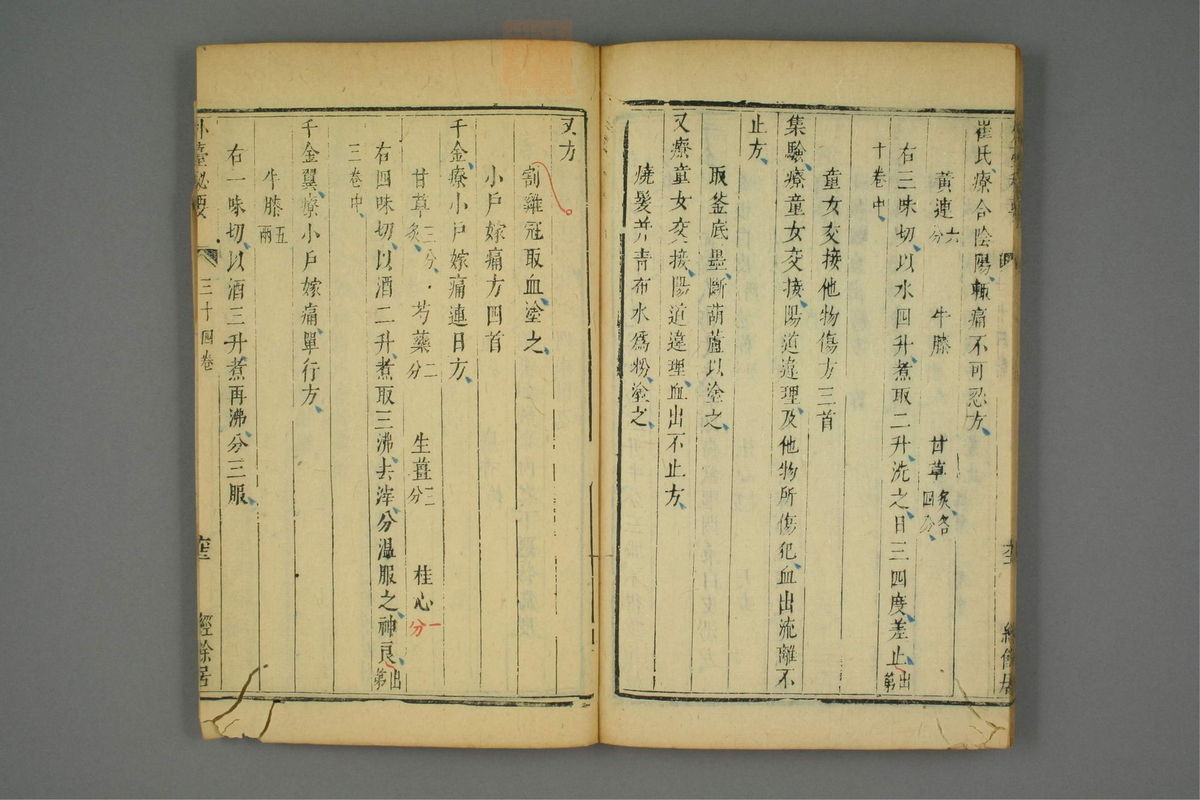 崔氏療合陰陽輒痛不可忍方
黃連六分 牛膝 甘草炙各四分
右三味切以水四升煮取二升洗之日三四度差止出第
十卷中
童女交接他物傷方三首
集驗療童女交接陽道違理及他物所傷犯血出流離不
止方
取釜底墨斷葫蘆以塗之
又療童女交接陽道違理血出不止方
燒髮并青布水為粉塗之
又方
割雞冠取血塗之
小戶嫁痛方四首
千金療小戶嫁痛連日方
甘草三分炙 芍藥二分 生薑三分 桂心一分
右四味切以酒二升煮取三沸去滓分溫服之神良出第
三卷中
千金翼療小戶嫁痛單行方
牛膝五兩
右一味切以酒三升煮再沸分三服
外臺秘要 三十四卷 經餘居